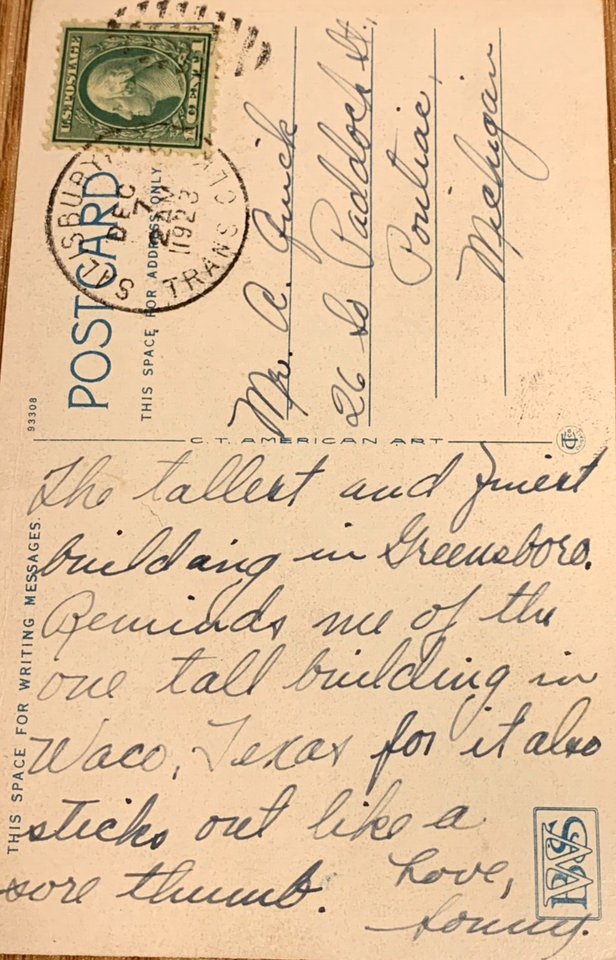 U.S. POSTAGE
1 CENT 1
SALISBURY
TRANS CLK
DEC
7
2 AM
1923
POST CARD
THIS SPACE FOR ADDRESS ONLY
Mr. A. Quick
26 So Paddock St.,
Pontiac,
Michigan
93308
C.T. AMERICAN ART
THIS SPACE FOR WRITING MESSAGES.
The tallest and finest
building in Greensboro.
Reminds me of the
one tall building in
Waco, Texas for it also
sticks out like a
sore thumb. Love,
Sonny.